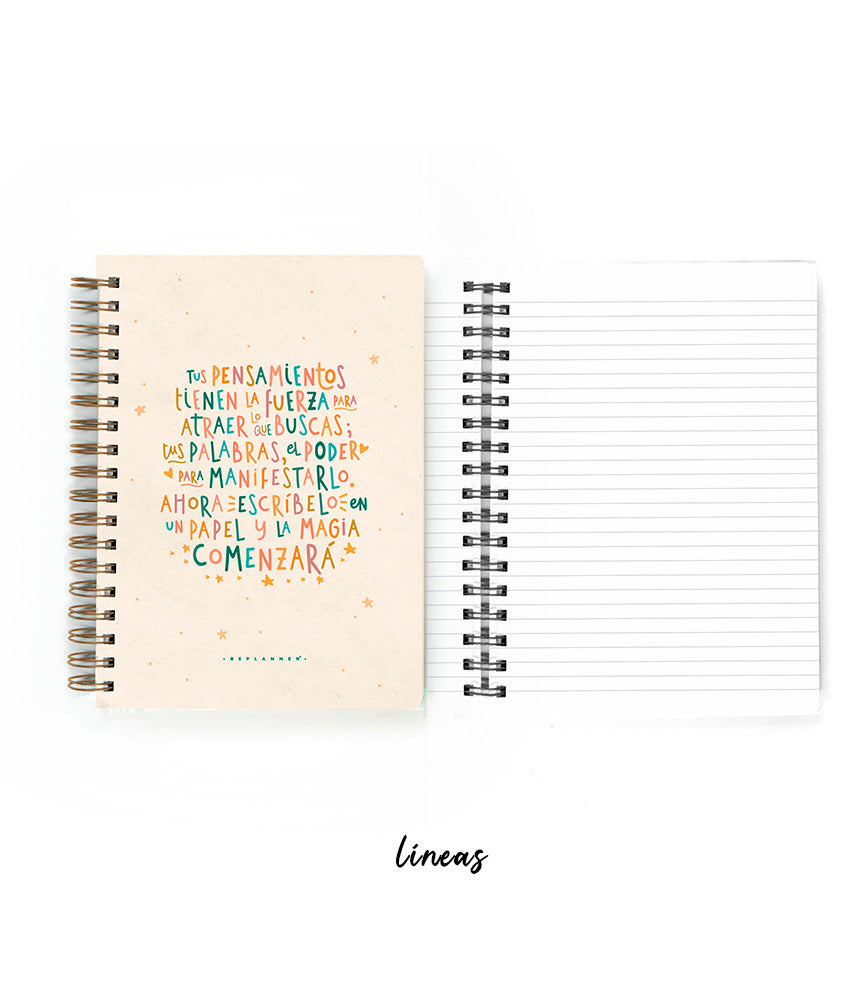 TUS PENSAMIENTOS
TIENEN LA FUERZA PARA
ATRAER LO QUE BUSCAS;
tus PALABRAS, el PODER
PARA MANIFESTARLO.
AHORA ESCRÍBELO en
UN PAPEL Y LA MAGIA
COMENZARÁ
·BEPLANNER·
líneas